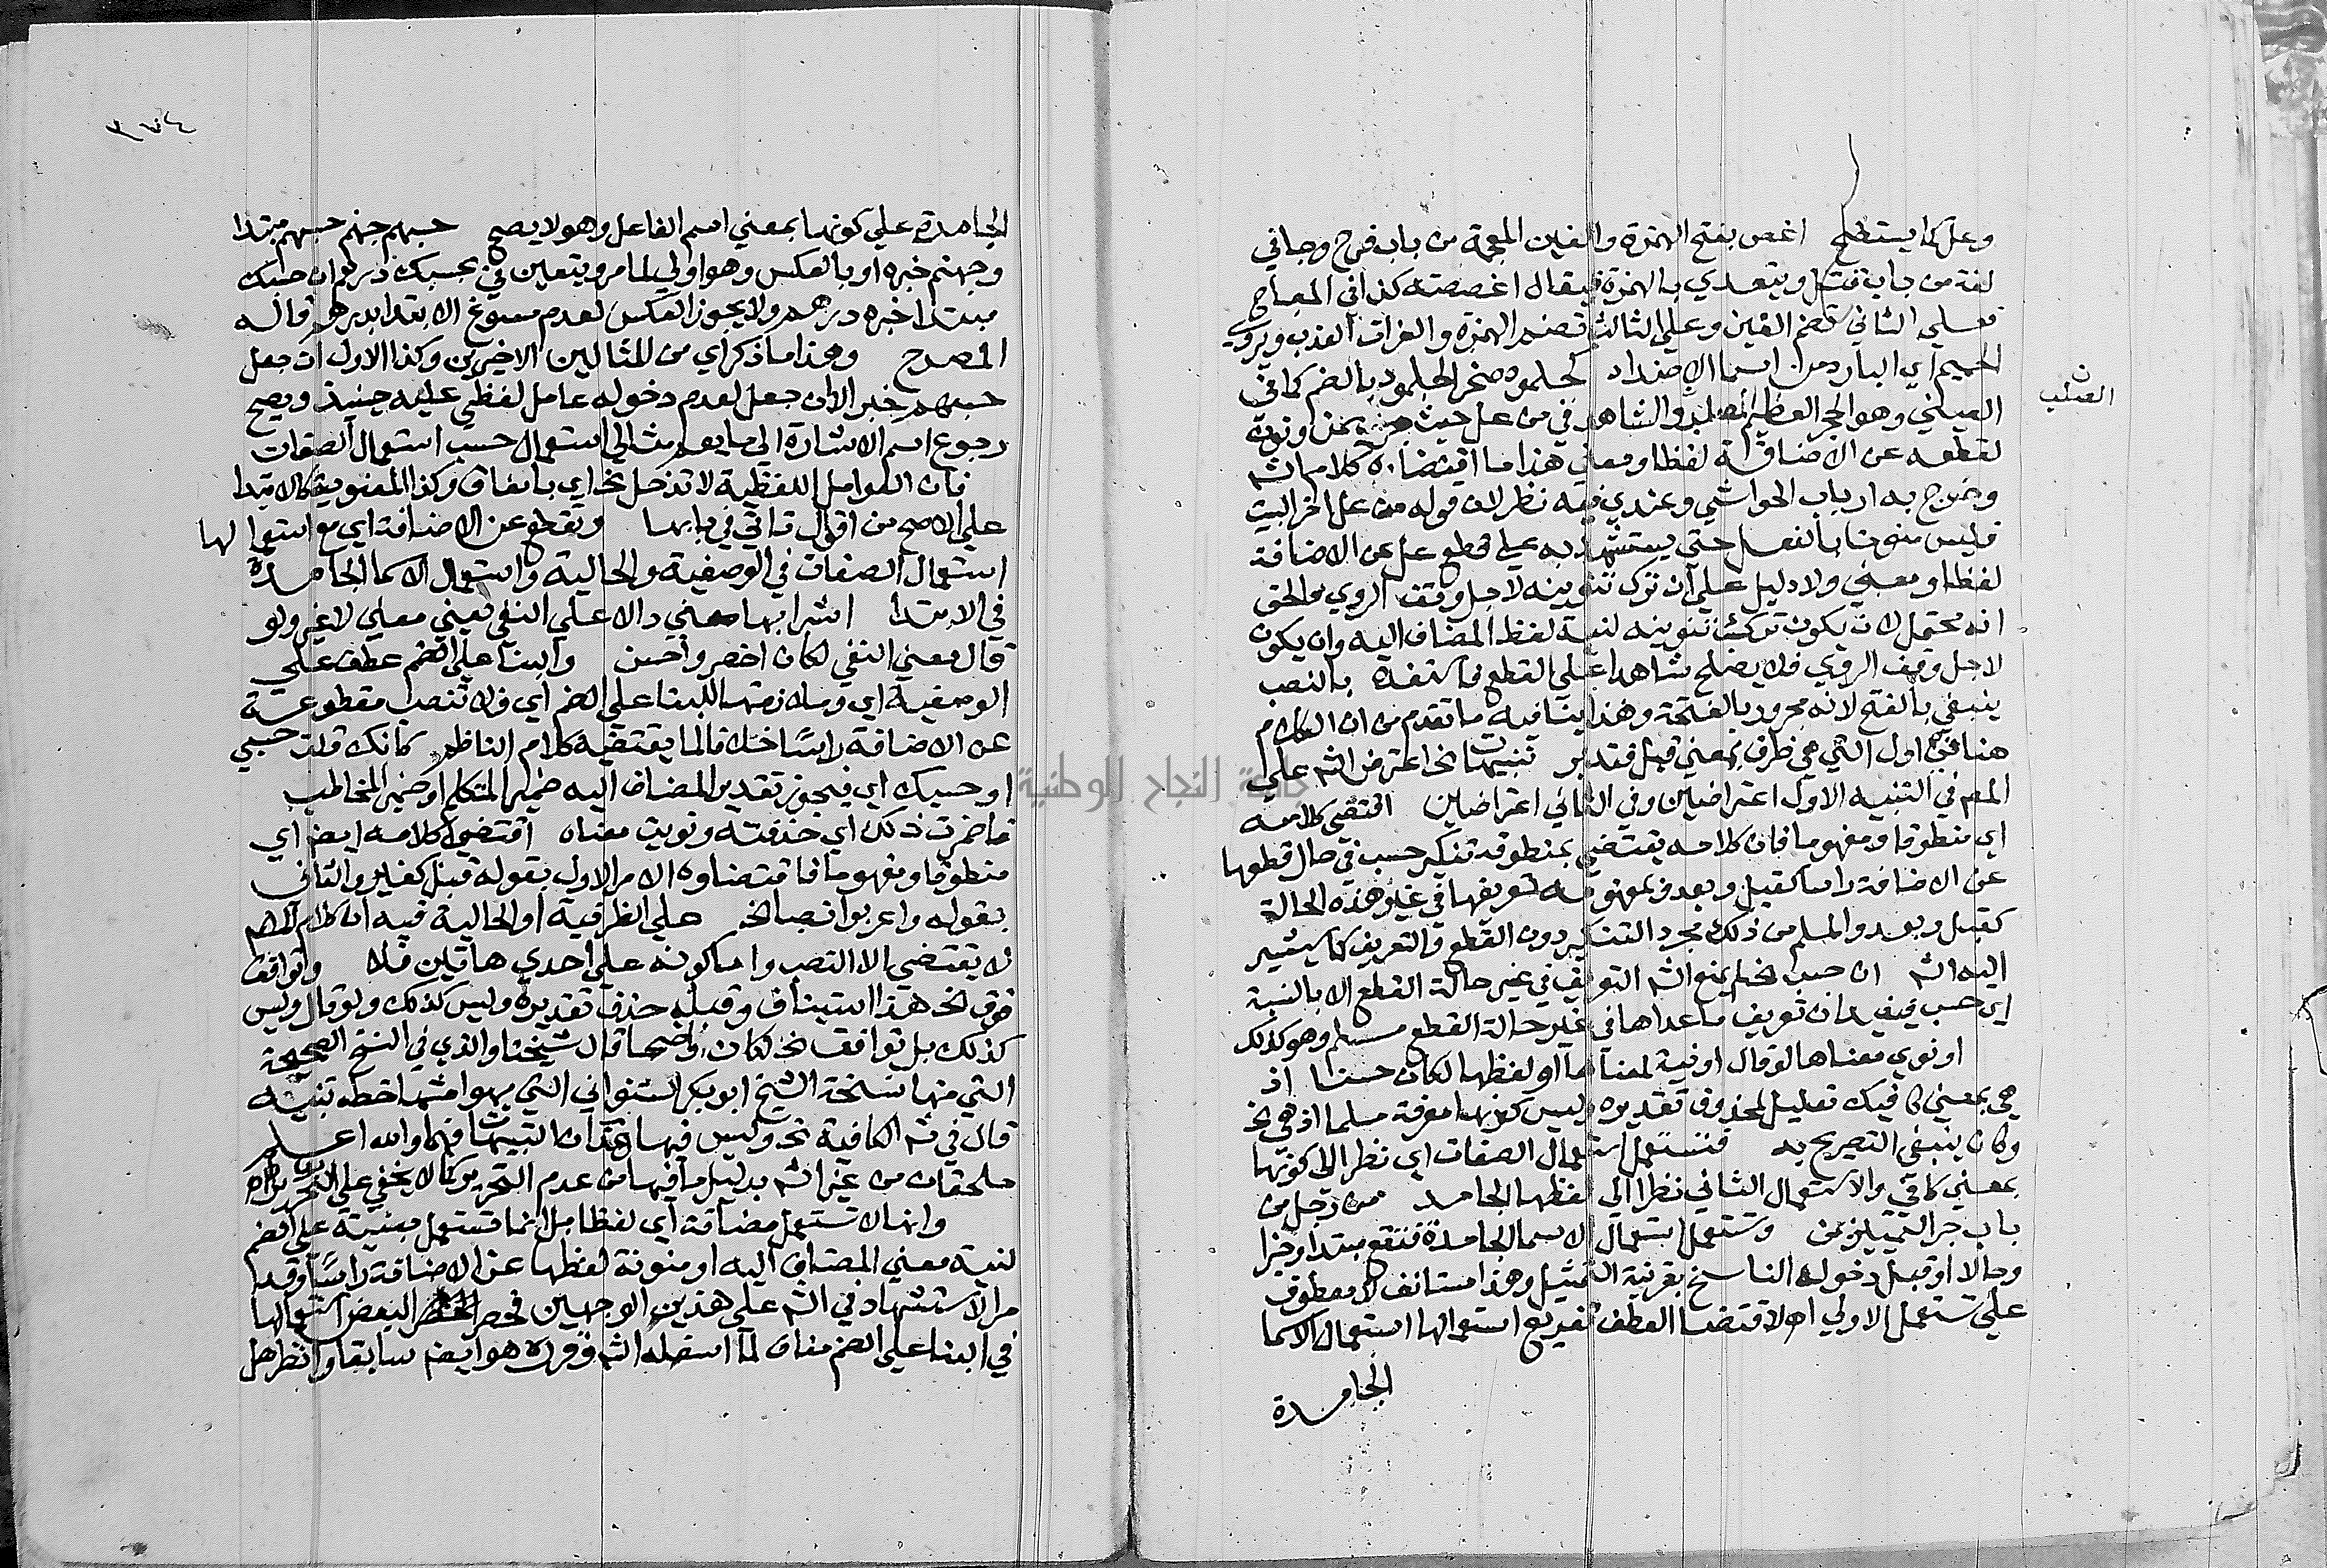 وعل كما يستطيع اغص بفتح الهمزة والغين المعجمة من باب فرح وجا في
لغة من باب قتل ويتعدي بالهمزة فيقال اغصصته كذا في المصباح
فعلي الثاني تضم الغين وعلي الثالث تضم الهمزة والفرات العذب ويروي
الحميم اي البارد من اسما الاضداد كجلمود صخر الجلمود بالضم كما في
العيني وهو الحجر العظيم الصلب والشاهد في من عل حيث جره بمن ونونه
الصلب
لقطعه عن الاضافة لفظا ومعني هذا ما اقتضاه كلام الشم
وصرح به ارباب الحواشي وعندي فيه نظر لان قوله من عل اخر البيت
فليس منونا بالفعل حتي يستشهد به علي قطع عل عن الاضافة
لفظا ومعني ولا دليل علي ان ترك تنوينه لاجل وقف الروي والحق
انه محتمل لان يكون ترك تنوينه لنية لفظ المضاف اليه وان يكون
لاجل وقف الروي فلا يصلح شاهدا علي القطع فاستفده بالنصب
ينبغي بالفتح لانه مجرور بالفتحة وهذا ينافيه ما تقدم من ان الكلام
هنا في اول التي هي ظرف بمعني قبل فتدبر تنبيهات الخ اعترض الشم علي
المص في التنبيه الاول اعتراضين وفي الثاني اعتراضين اقتضي كلامه
اي منطوقا ومفهوما فان كلامه يقتضي بمنطوقه تنكير حسب في حال قطعها
عن الاضافة راسا كقبل وبعد وبمفهومه تعريفها في غير هذه الحالة
كقبل وبعد والمسلم من ذلك مجرد التنكير دون القطع والتعريف كما يشير
اليه الشم ان حسب الخ لم يمنع الشم التعريف في غير حالة القطع الا بالنسبة
اي حسب فيفيد ان تعريف ما عداها في غير حالة القطع مسلم وهو كذلك
او نوي معناها لو قال او نية لمعناها او لفظها لكان حسنا اذ
هي بمعني كافيك تعليل لمحذوف تقديره وليس كونها معرفة مسلما اذ هي الخ
وكان ينبغي التصريح به فتستعمل استعمال الصفات اي نظرا الي كونها
بمعني كافي والاستعمال الثاني نظرا الي لفظها الجامد من رجل من
باب جر التمييز بمن وتستعمل استعمال الاسما الجامدة فتقع مبتدا وخبرا
وحالا اي قبل دخول الناسخ بقرينة التمثيل وهذا مستانف لا معطوف
علي تستعمل الاولي اذ لاقتضا العطف تفريع استعمالها استعمال الاسما
الجامدة
٣٧٤
الجامدة علي كونها بمعني اسم الفاعل وهو لا يصح حسبهم جهنم حسبهم مبتدا
وجهنم خبره او بالعكس وهو اولي لما مر ويتعين في بحسبك درهم ان حسبك
مبتدا خبره درهم ولا يجوز العكس لعدم مسوغ الابتدا بدرهم قاله
المصرح وهذا ما ذكر اي من المثالين الاخيرين وكذا الاول ان جعل
حسبهم خبرا لا ان جعل لعدم دخول عامل لفظي عليه حينئذ ويصح
رجوع اسم الاشارة الي ما يعم مثالي استعمال حسب استعمال الصفات
فان العوامل اللفظية لا تدخل الخ اي باتفاق وكذا المعنوية كالابتدا
علي الاصح من اقوال تاتي في بابها وتقطع عن الاضافة اي مع استعمالها
استعمال الصفات في الوصفية والحالية واستعمال الاسما الجامدة
في الابتدا اشرابها معني دالا علي النفي يعني معني لا غير ولو
قال معني النفي لكان اخصر واحسن والبنا علي الضم عطف علي
الوصفية اي وملازمتها للبنا علي الضم اي فلا تنصب مقطوعة
عن الاضافة راسا خلافا لما يقتضيه كلام الناظم كانك قلت حسبي
او حسبك اي فيجوز تقدير المضاف اليه ضمير المتكلم او ضمير المخاطب
فاضمرت ذلك اي حذفته ونويت معناه اقتضي كلامه ايضا اي
منطوقا ومفهوما فاقتضاوه الامر الاول بقوله قبل كغير والثاني
بقوله واعربوا نصبا الخ علي الظرفية او الحالية فيه ان كلام المص
لا يقتضي الا النصب واما كونه علي احدي هاتين فلا وتوافقا
فوق الخ هذا استيناف وقبله حذف تقديره وليس كذلك ولو قال وليس
كذلك بل توافق الخ لكان واضحا قال شيخنا والذي في النسخ الصحيحة
التي منها نسخة الشيخ ابو بكر الشنواني التي بهوامشها خطه تنبيه
قال في شم الكافية الخ وليس فيها هذان التنبيهان فهما والله اعلم
ملحقان من غير الشم بدليل ما فيهما من عدم التحرير كما لا يخفي علي
وانها لا تستعمل مضافة اي لفظا بل انما تستعمل مبنية علي الضم
لنية معني المضاف اليه او منونة لقطعها عن الاضافة راسا وقد
مر الاستشهاد في الشم علي هذين الوجهين فحصر البعض استعمالها
في البنا علي الضم مناف لما اسلفه الشم وقرره هو ايضا سابقا وانظر هل
جامعة النجاح الوطنية